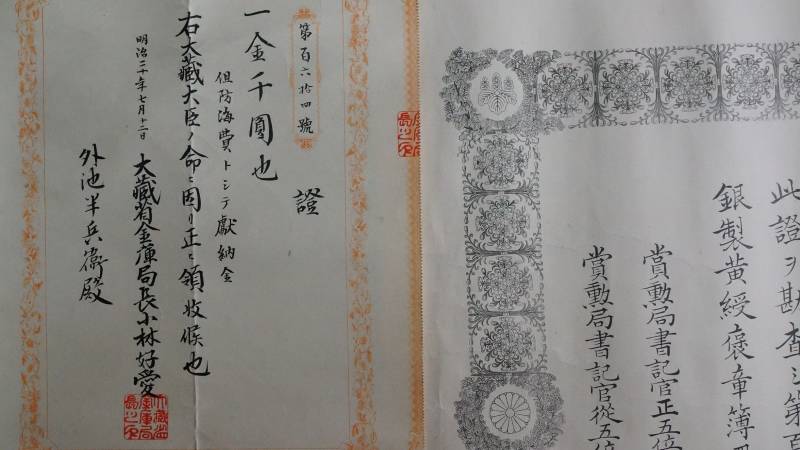 第百六拾四號
證
一金千圓也
但防海費トシテ獻納金
右大藏大臣ノ命ニ因リ正ニ領收候也
明治二十年七月十二日
大藏省金庫局長小林好愛
外池半兵衞殿
大藏省金庫局長之印
此證ヲ勘査シ第百
銀製黃綬褒章簿冊
賞勲局書記官正五位
賞勲局書記官從五位